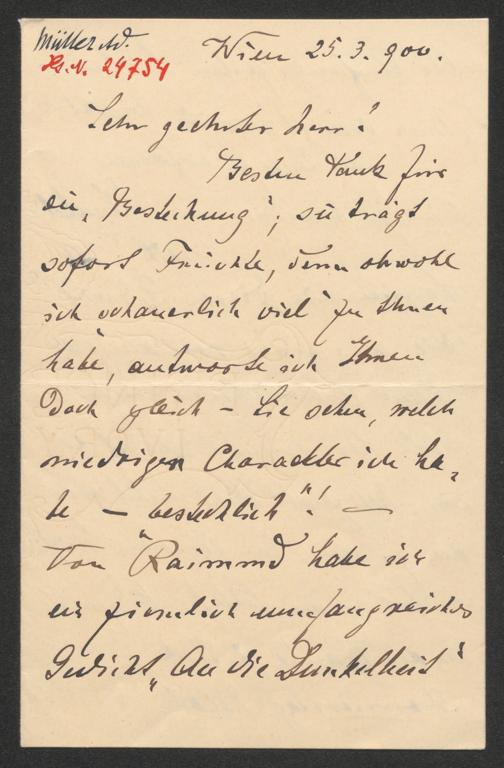 Müller Ad.
Hs. N. 24754
Wien 25. 3. 900.
Sehr geehrter Herr!
Besten Dank für
die „Bestechung"; sie trägt
sofort Früchte, denn obwohl
ich „schauerlich viel" zu thuen
habe, antworte ich Ihnen
doch gleich – Sie sehen, welch
niedrigen Charackter ich ha-
be – bestechlich"! –
Von "Raimund habe ich
ein ziemlich umfangreiches
Gedicht „An die Dunkelheit"